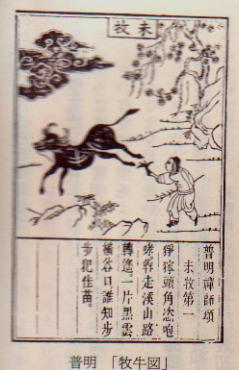 未牧
普明禪師頌
未牧第一
猙獰頭角恣咆
哮奔走溪山路
轉遙一片黑雲
橫谷口誰知步
步犯佳苗
普明 「牧牛図」